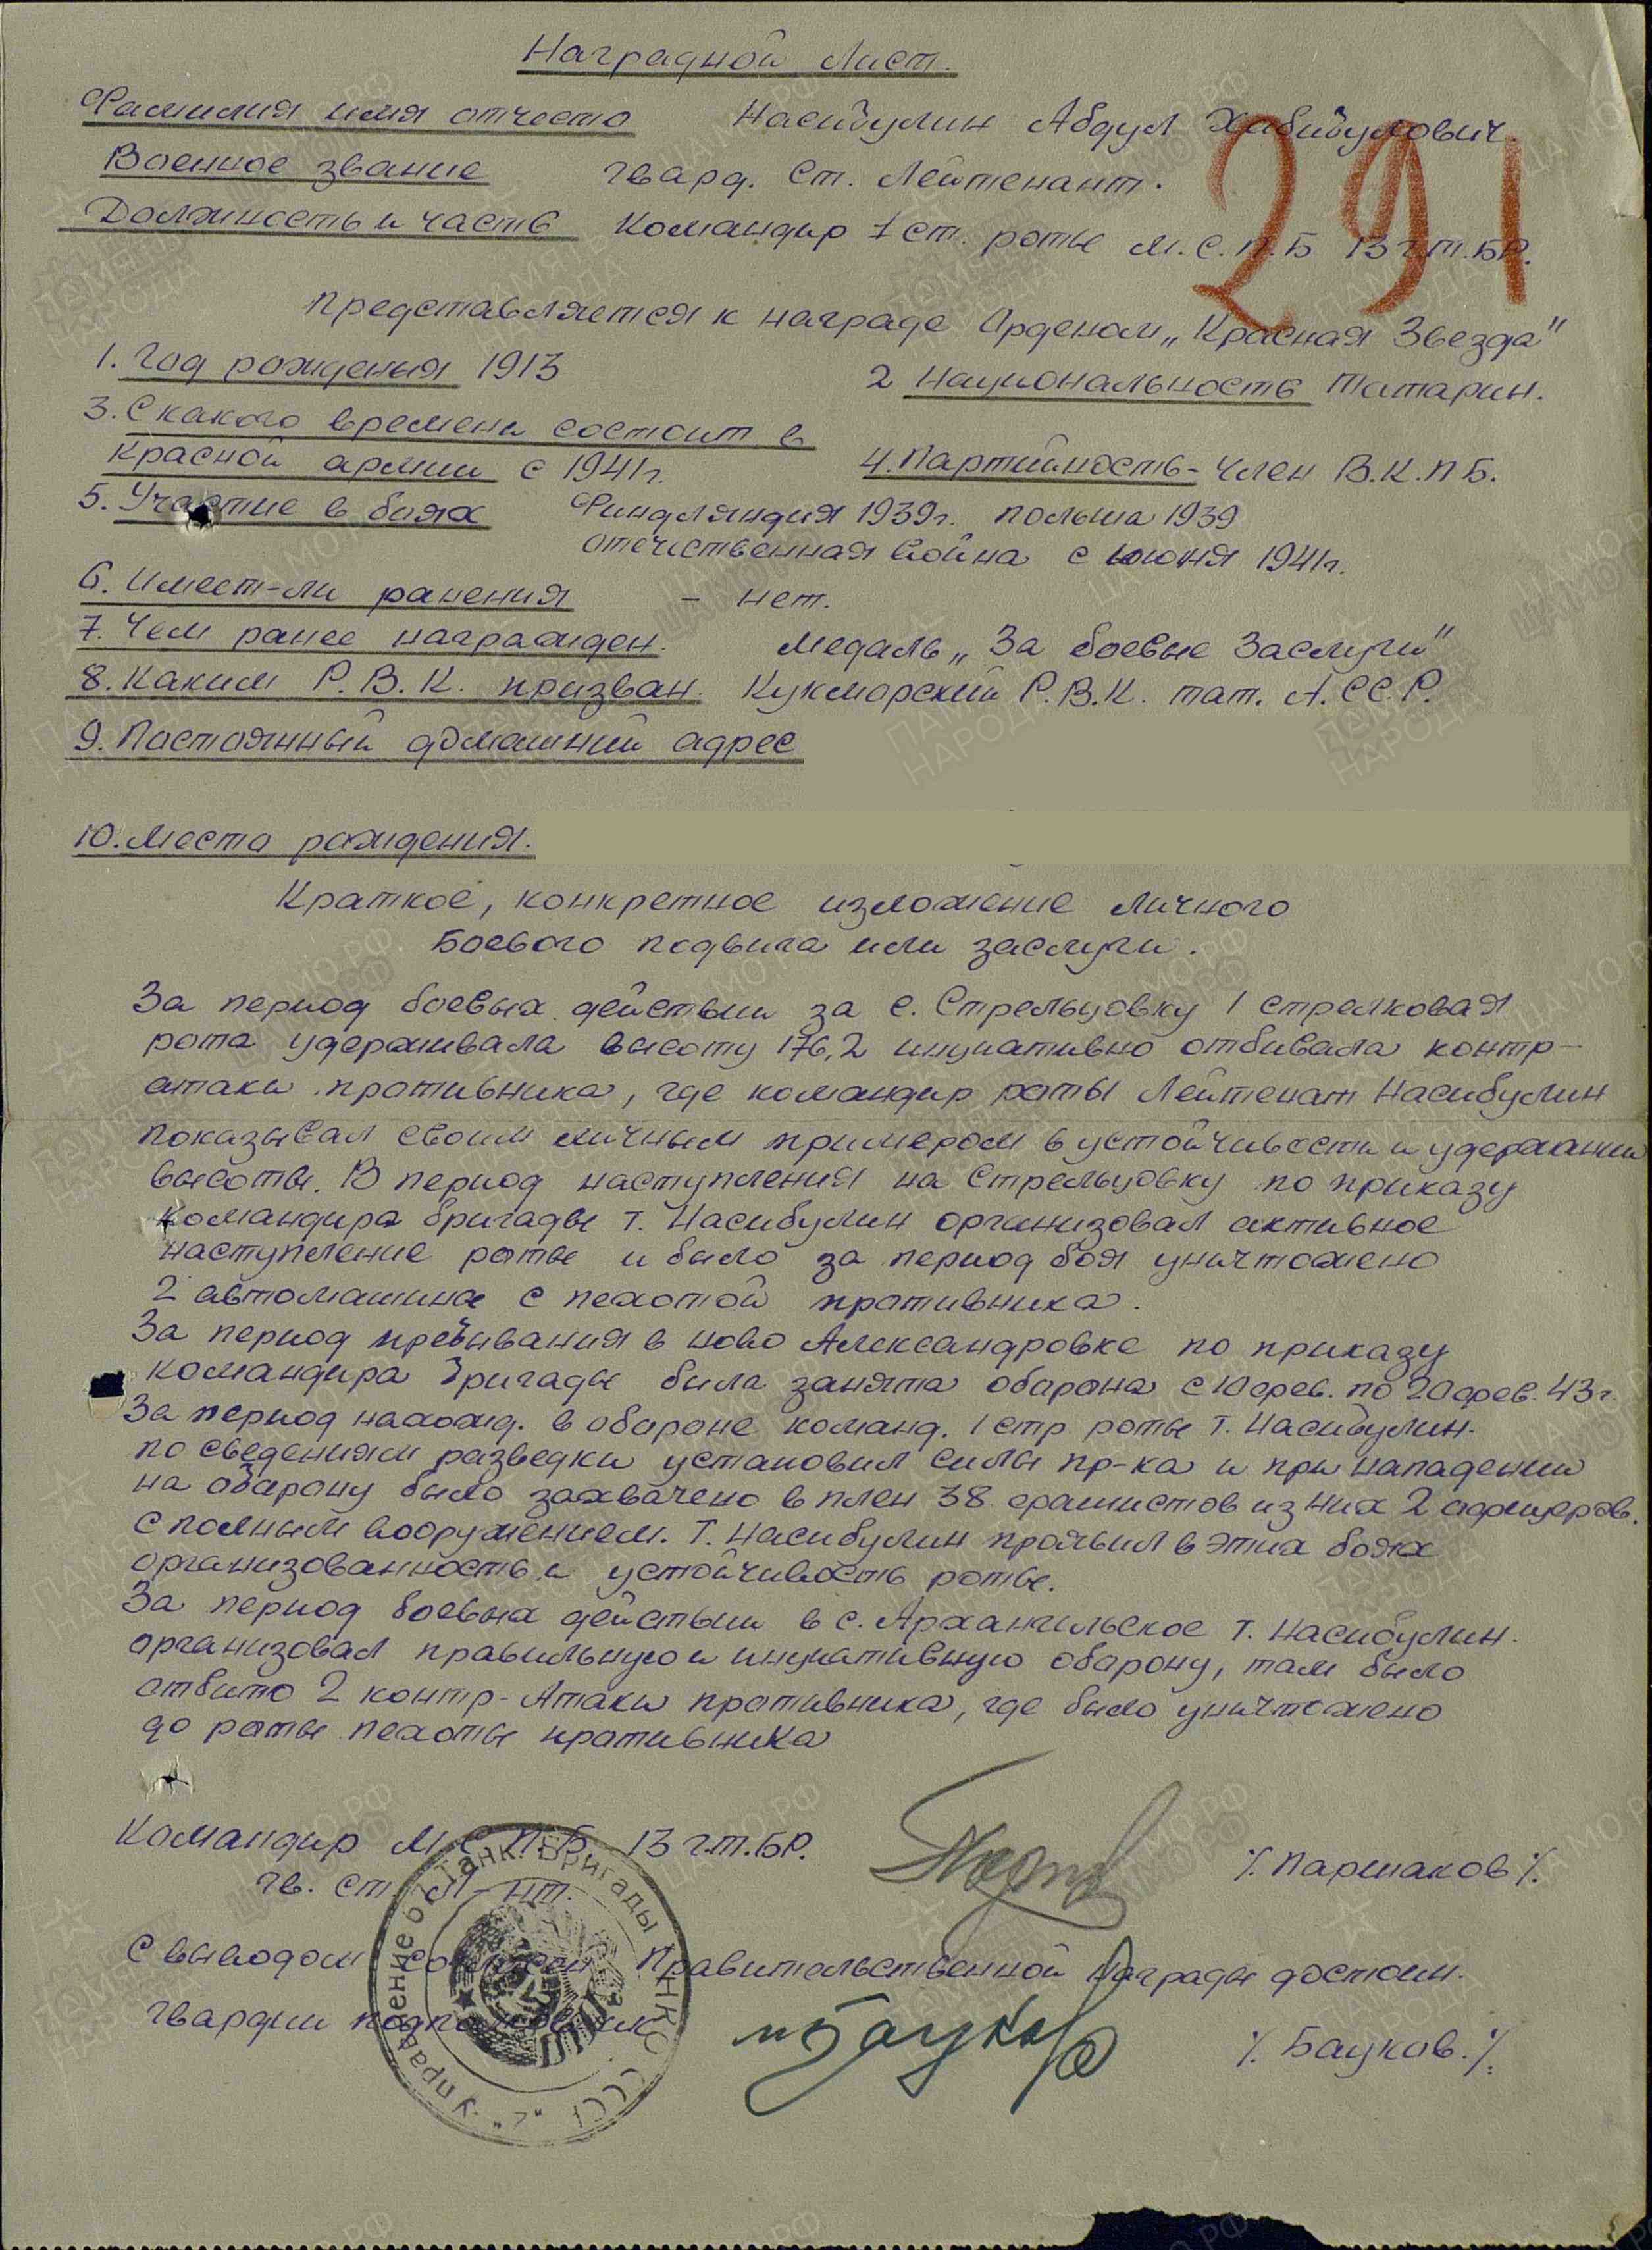 Наградной Лист.
291
Фамилия имя отчество Насибулин Абдул Хабибулович.
Военное звание Гвард. Ст. Лейтенант.
Должность и часть Командир 1 ст. роты М.С.П.Б 13 г.т.БР.
Представляется к награде Орденом „Красная Звезда"
1. Год рождения 1913 2 Национальность Татарин.
3. С какого времени состоит в
Красной армии с 1941г. 4. Партийность - Член В.К.П Б.
5. Участие в боях Финдляндия 1939г. Польша 1939
Отечественная война с июня 1941г.
6. Имеет-ли ранения - нет.
7. Чем ранее награжден. Медаль „За боевые Заслуги"
8. Каким Р.В.К. призван. Кукморский Р.В.К. тат. А.СС.Р.
9. Постоянный домашний адрес
10. Место рождения.
Краткое, конкретное изложение личного
Боевого подвига или заслуги.
За период боевых действии за с. Стрельцовку 1 стрелковая
рота удерживала высоту 176,2 инциативно отбивала контр-
атаки противника, где командир роты Лейтенат Насибулин
показывал своим личным примером в устойчивости и удержании
высоты. В период наступления на Стрельцовку по приказу
командира бригады т. Насибулин организовал активное
наступление роты и было за период боя уничтожено
2 автомашины с пехотой противника.
За период пребывания в ново Александровке по приказу
командира Бригады была занята оборона с 10 фев. по 20 фев. 43г.
За период нахожд. в обороне команд. 1 стр роты т. Насибулин.
по сведениям разведки установил силы пр-ка и при нападении
на оборону было захвачено в плен 38 фашистов из них 2 офицеров.
с полным вооружением. Т. Насибулин проявил в этих боях
организованность и устойчивость роты.
За период боевых действии в с. Архангильское т. Насибулин.
организовал правильную и инциативную оборону, там было
отбито 2 контр-Атаки противника, где было уничтожено
до роты пехоты противника
Командир М.С.П.Б. 13 г.т.БР.
гв. ст. Л-нт. /. Паршаков /.
С выводом согласен Правительственной Награды достоин.
Гвардии подполковник /. Бауков. /.
Управление Танк. Бригады НКО СССР